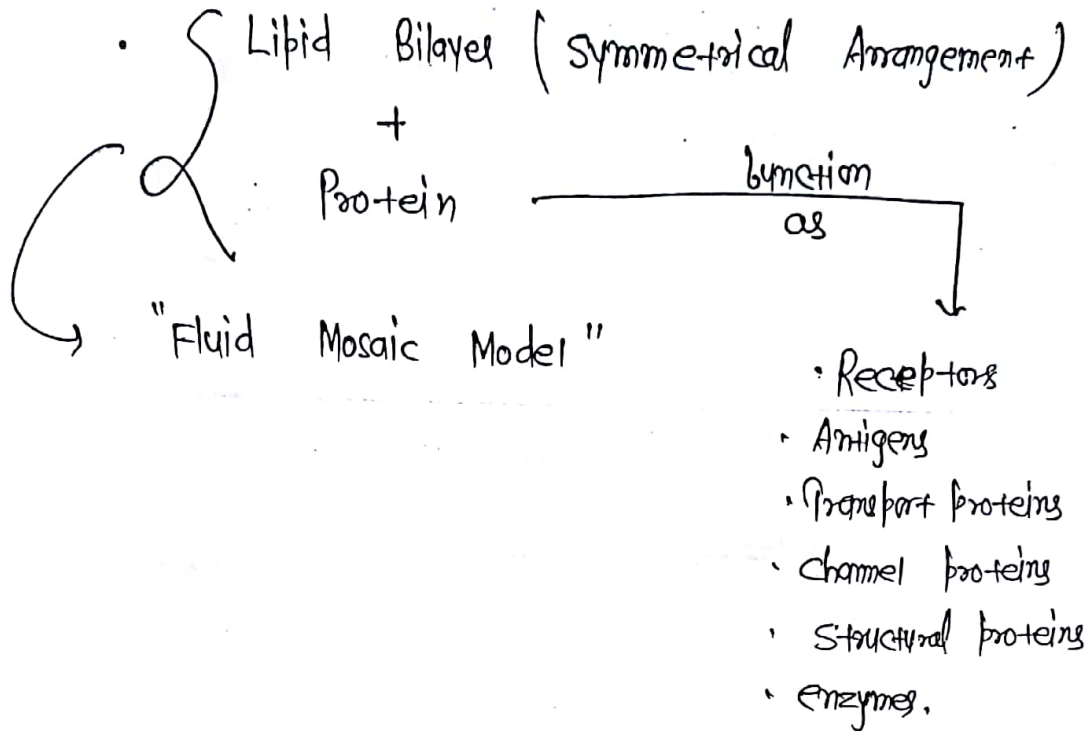 • Lipid Bilayer (Symmetrical Arrangement)
+
Protein
function
as
"Fluid Mosaic Model"
• Receptors
• Antigens
• Transport proteins
• Channel proteins
• Structural proteins
• enzymes.